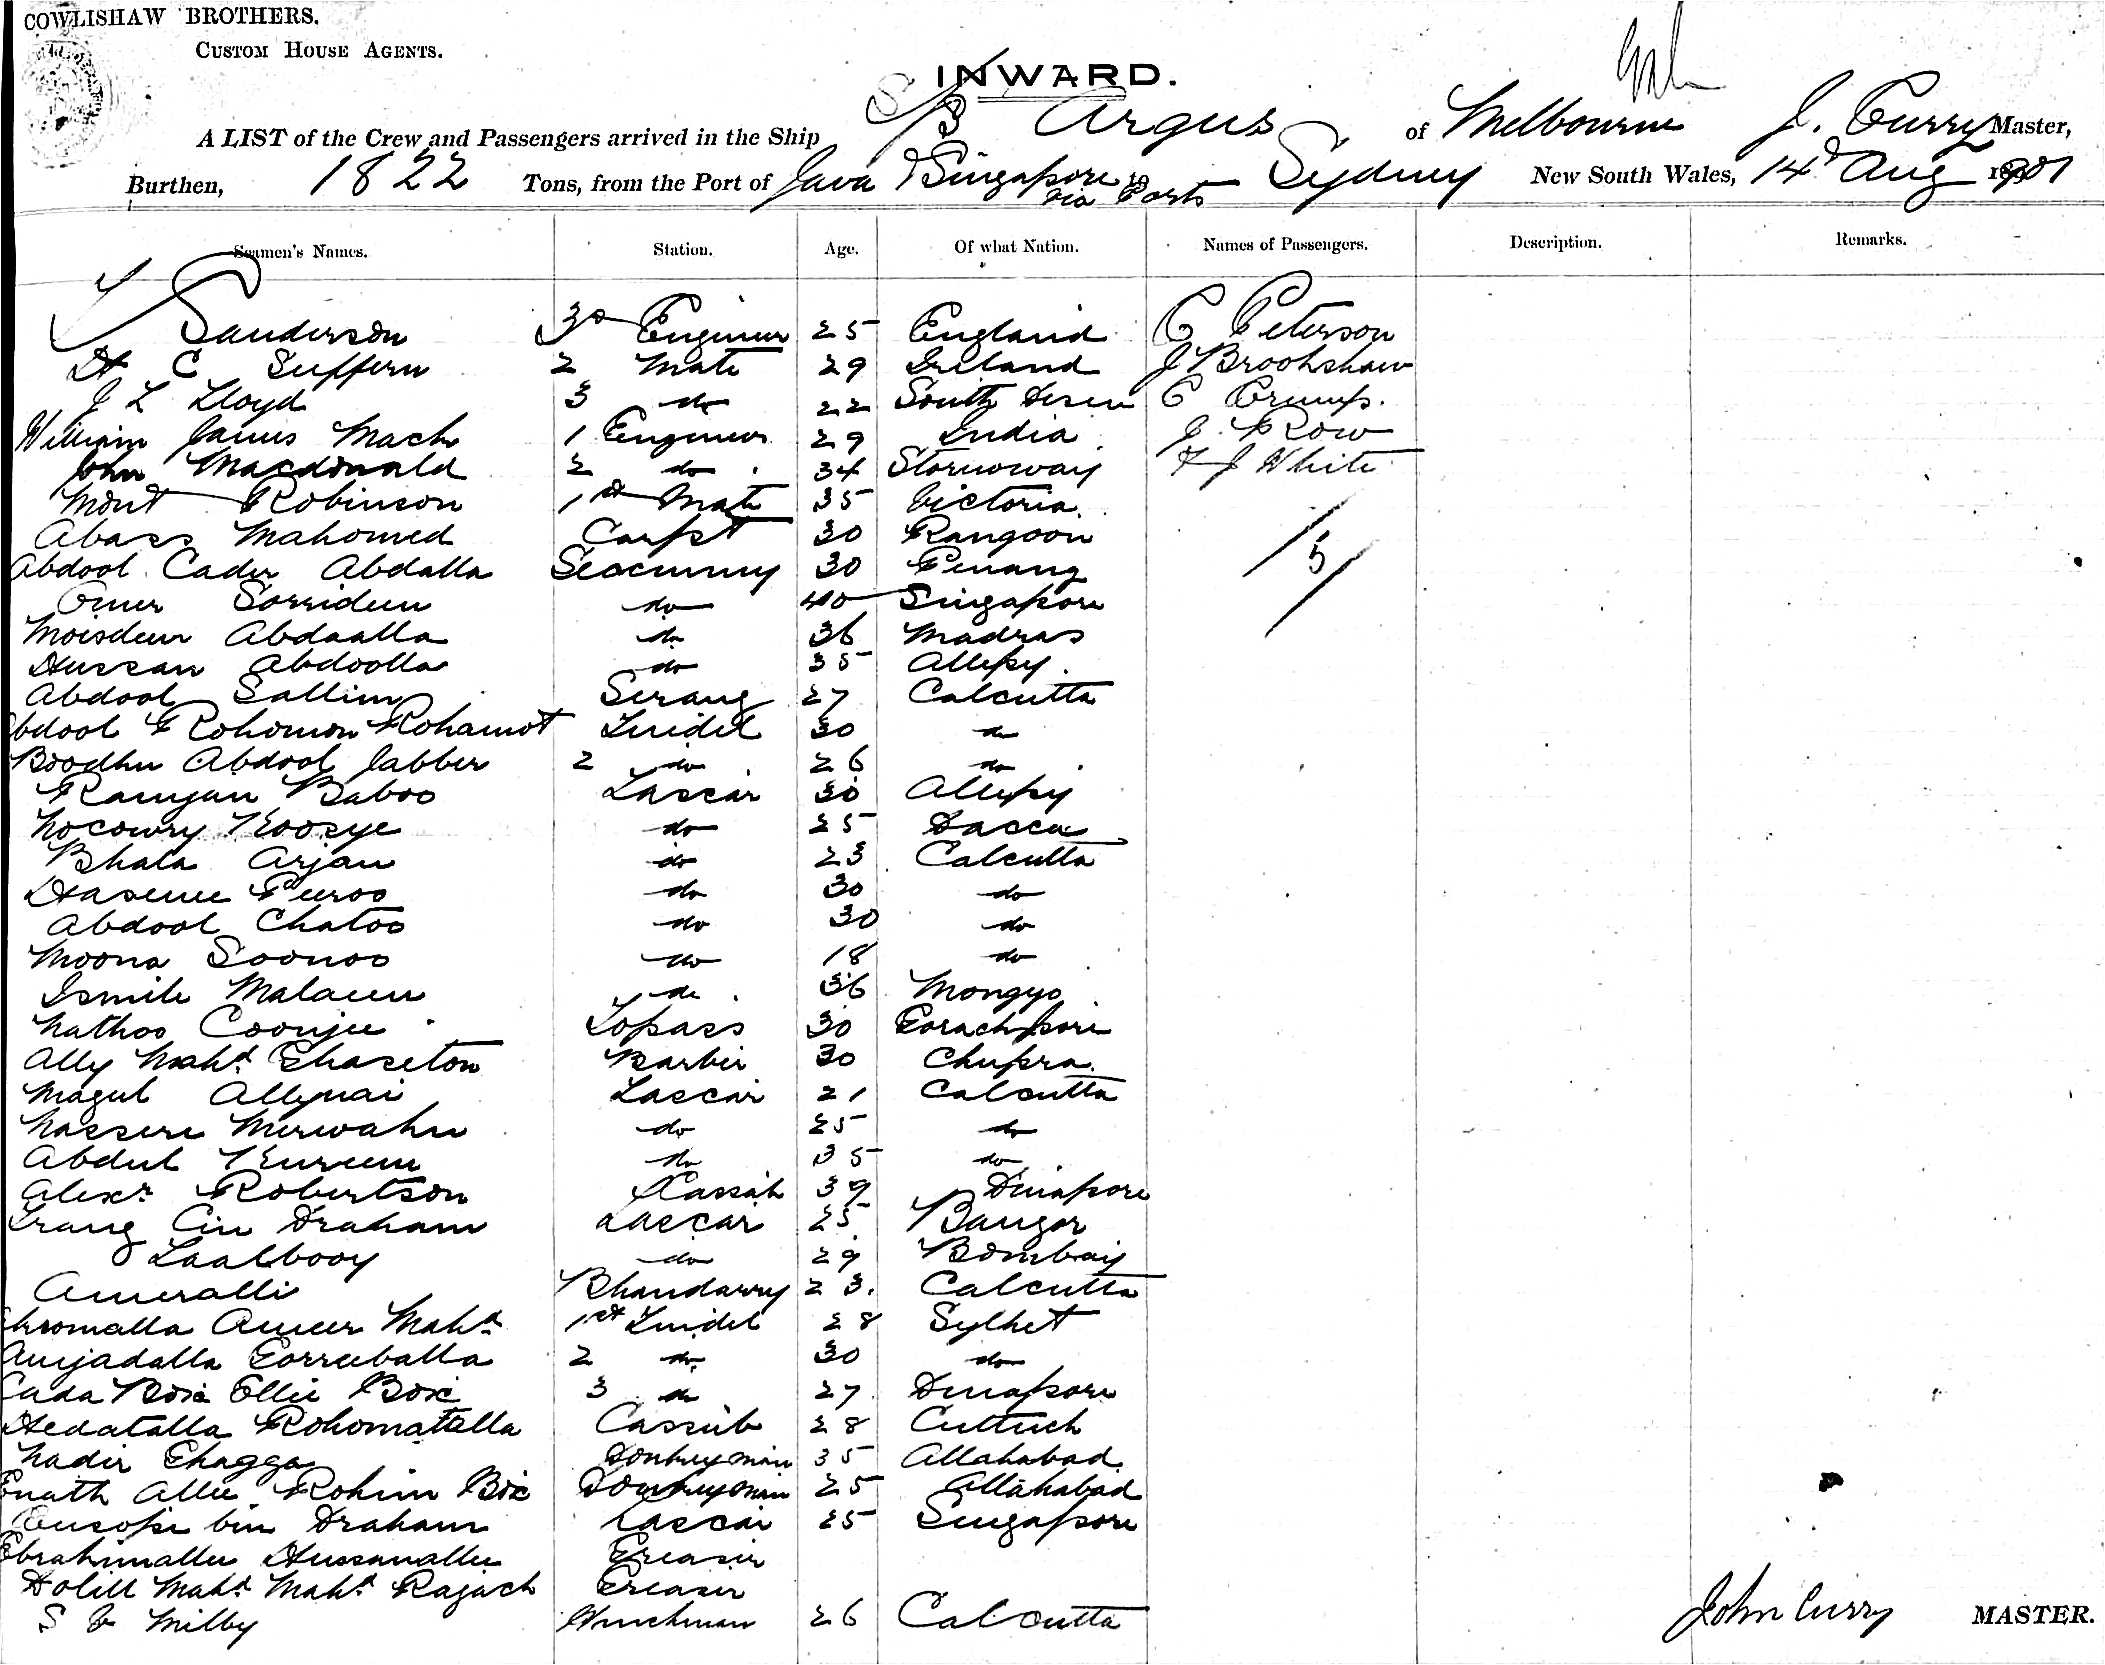 COWLISHAW BROTHERS.
CUSTOM HOUSE AGENTS.
INWARD.
A LIST of the Crew and Passengers arrived in the Ship S/S Argus of Melbourne J. Curry Master,
Burthen, 1822 Tons, from the Port of Java & Singapore via Ports to Sydney New South Wales, 14 Aug 1901
Seamen's Names. Station. Age. Of what Nation. Names of Passengers. Description. Remarks.
Sanderson 3rd Engineer 25 England C Peterson
H C Suffern 2 Mate 29 Ireland J Brookshaw
J L Lloyd 3 do 22 South C Crump.
William James Mack 1 Engineer 29 India J. Row
John Macdonald 2 do 34 Stornoway F J White
Mont Robinson 1st Mate 35 Victoria
Abass Mahomed Carpt 30 Rangoon 5
Abdool Cader Abdalla Seacunny 30 Penang
Omer Sorrideen do 40 Singapore
Moisdeen Abdaalla do 36 Madras
Hussan Abdoolla do 35 Allepy
Abdool Sallim Serang 27 Calcutta
Abdool Rohomon Rohamot Tindel 30 do
Boodhu Abdool Jabber 2 do 26 do
Ramjan Baboo Lascar 30 Allepy
Nocowry Koosye do 25 Dacca
Bhala Arjan do 23 Calcutta
Peeroo do 30 do
Abdool Chatoo do 30 do
Moona Soonoo do 18 do
Ismile Malaeen do 36 Mongyo
Nathoo Coonjee Topass 30 Gorachpore
Ally Mahd. Barber 30 Chupra
Magul Allymai Lascar 21 Calcutta
Nasseri do 25 do
Abdul Kureem do 35 do
Alexr. Robertson Cassab 39 Dinapore
Draham Lascar 25 Bangor
Laalbooy do 29 Bombay
Ameralli Bhandarry 23. Calcutta
Ameer Mahd 1st Tindel 28 Sylhet
Amjadalla Gorreeballa 2 do 30 do
Box Ellie Box 3 do 27 Dinapore
Hedatalla Rohomattella Cassub 28 Cuttuck
Nadir Ghagga Donkeyman 35 Allahabad
Enath Allee Rohim Box Donkeyman 25 Allahabad
Eusope bin Draham Lascar 25 Singapore
Ebrahimallee Hussanallee Greaser
Dolill Mahd. Mahd. Rajack Greaser
S V Milby Winchman 26 Calcutta
John Curry MASTER.